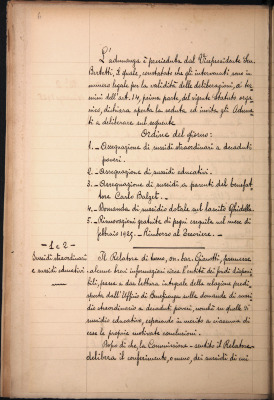 6
L'adunanza è presieduta dal Vicepresidente Sen.
Bertetti, il quale, constatato che gli intervenuti sono in
numero legale per la validità delle deliberazioni, ai ter-
mini dell'art. 14, prima parte, del vigente Statuto orga-
nico, dichiara aperta la seduta ed invita gli Adunati
a deliberare sul seguente
Ordine del giorno:
1. - Assegnazione di sussidi straordinari a decaduti
poveri.
2. - Assegnazione di sussidi educativi.
3. - Assegnazione di sussidi a parenti del benefat-
tore Carlo
4. - Domanda di sussidio dotale sul lascito Ghidella.
5. - Rinnovazioni gratuite di pegni eseguite nel mese di
febbraio 1925. - Rimborso al Tesoriere. -
- 1 e 2 -
Sussidi straordinari
e sussidi educativi
Il Relatore di bene, on. bar. Gianotti, premesse
alcune brevi informazioni circa l'entità dei fondi disponi-
bili, passa a dar lettura integrale della relazione predi-
sposta dall'Ufficio di Beneficenza sulle domande di sussi-
dio straordinario a decaduti poveri, nonchè su quelle di
sussidio educativo, esponendo in merito a ciascuna di
esse le proprie motivate conclusioni.
Dopo di che, la Commissione - sentito il Relatore -
delibera il conferimento, o meno, dei sussidi di cui